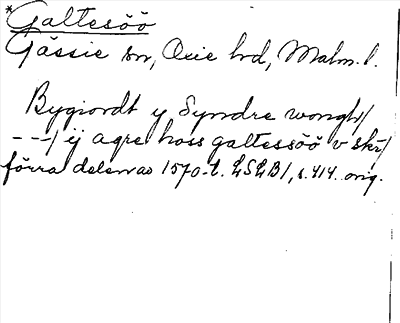 *Galtesöö
Gässie sn, Oxie hrd, Malm. l.
Bygiordt y Syndre wonght/
- - -/ ij agre hoss galtessöö v skr/
förra delen av 1570-t. LSLB1, s. 414. orig.